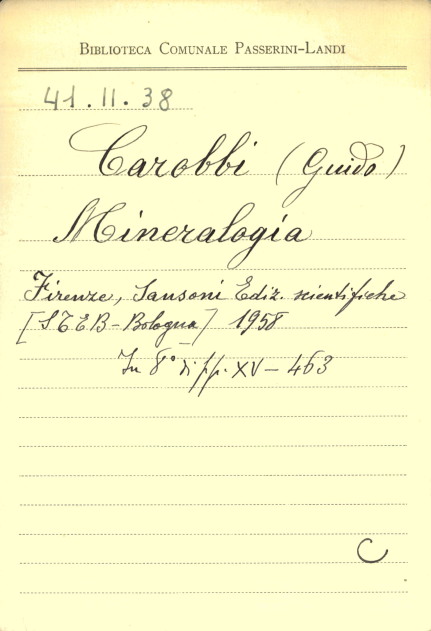 BIBLIOTECA COMUNALE PASSERINI-LANDI
41.II.38
Carobbi (Guido)
Mineralogia
Firenze, Sansoni Ediz. scientifiche
[STEB-Bologna] 1958
In 8° di pp. XV-463
C